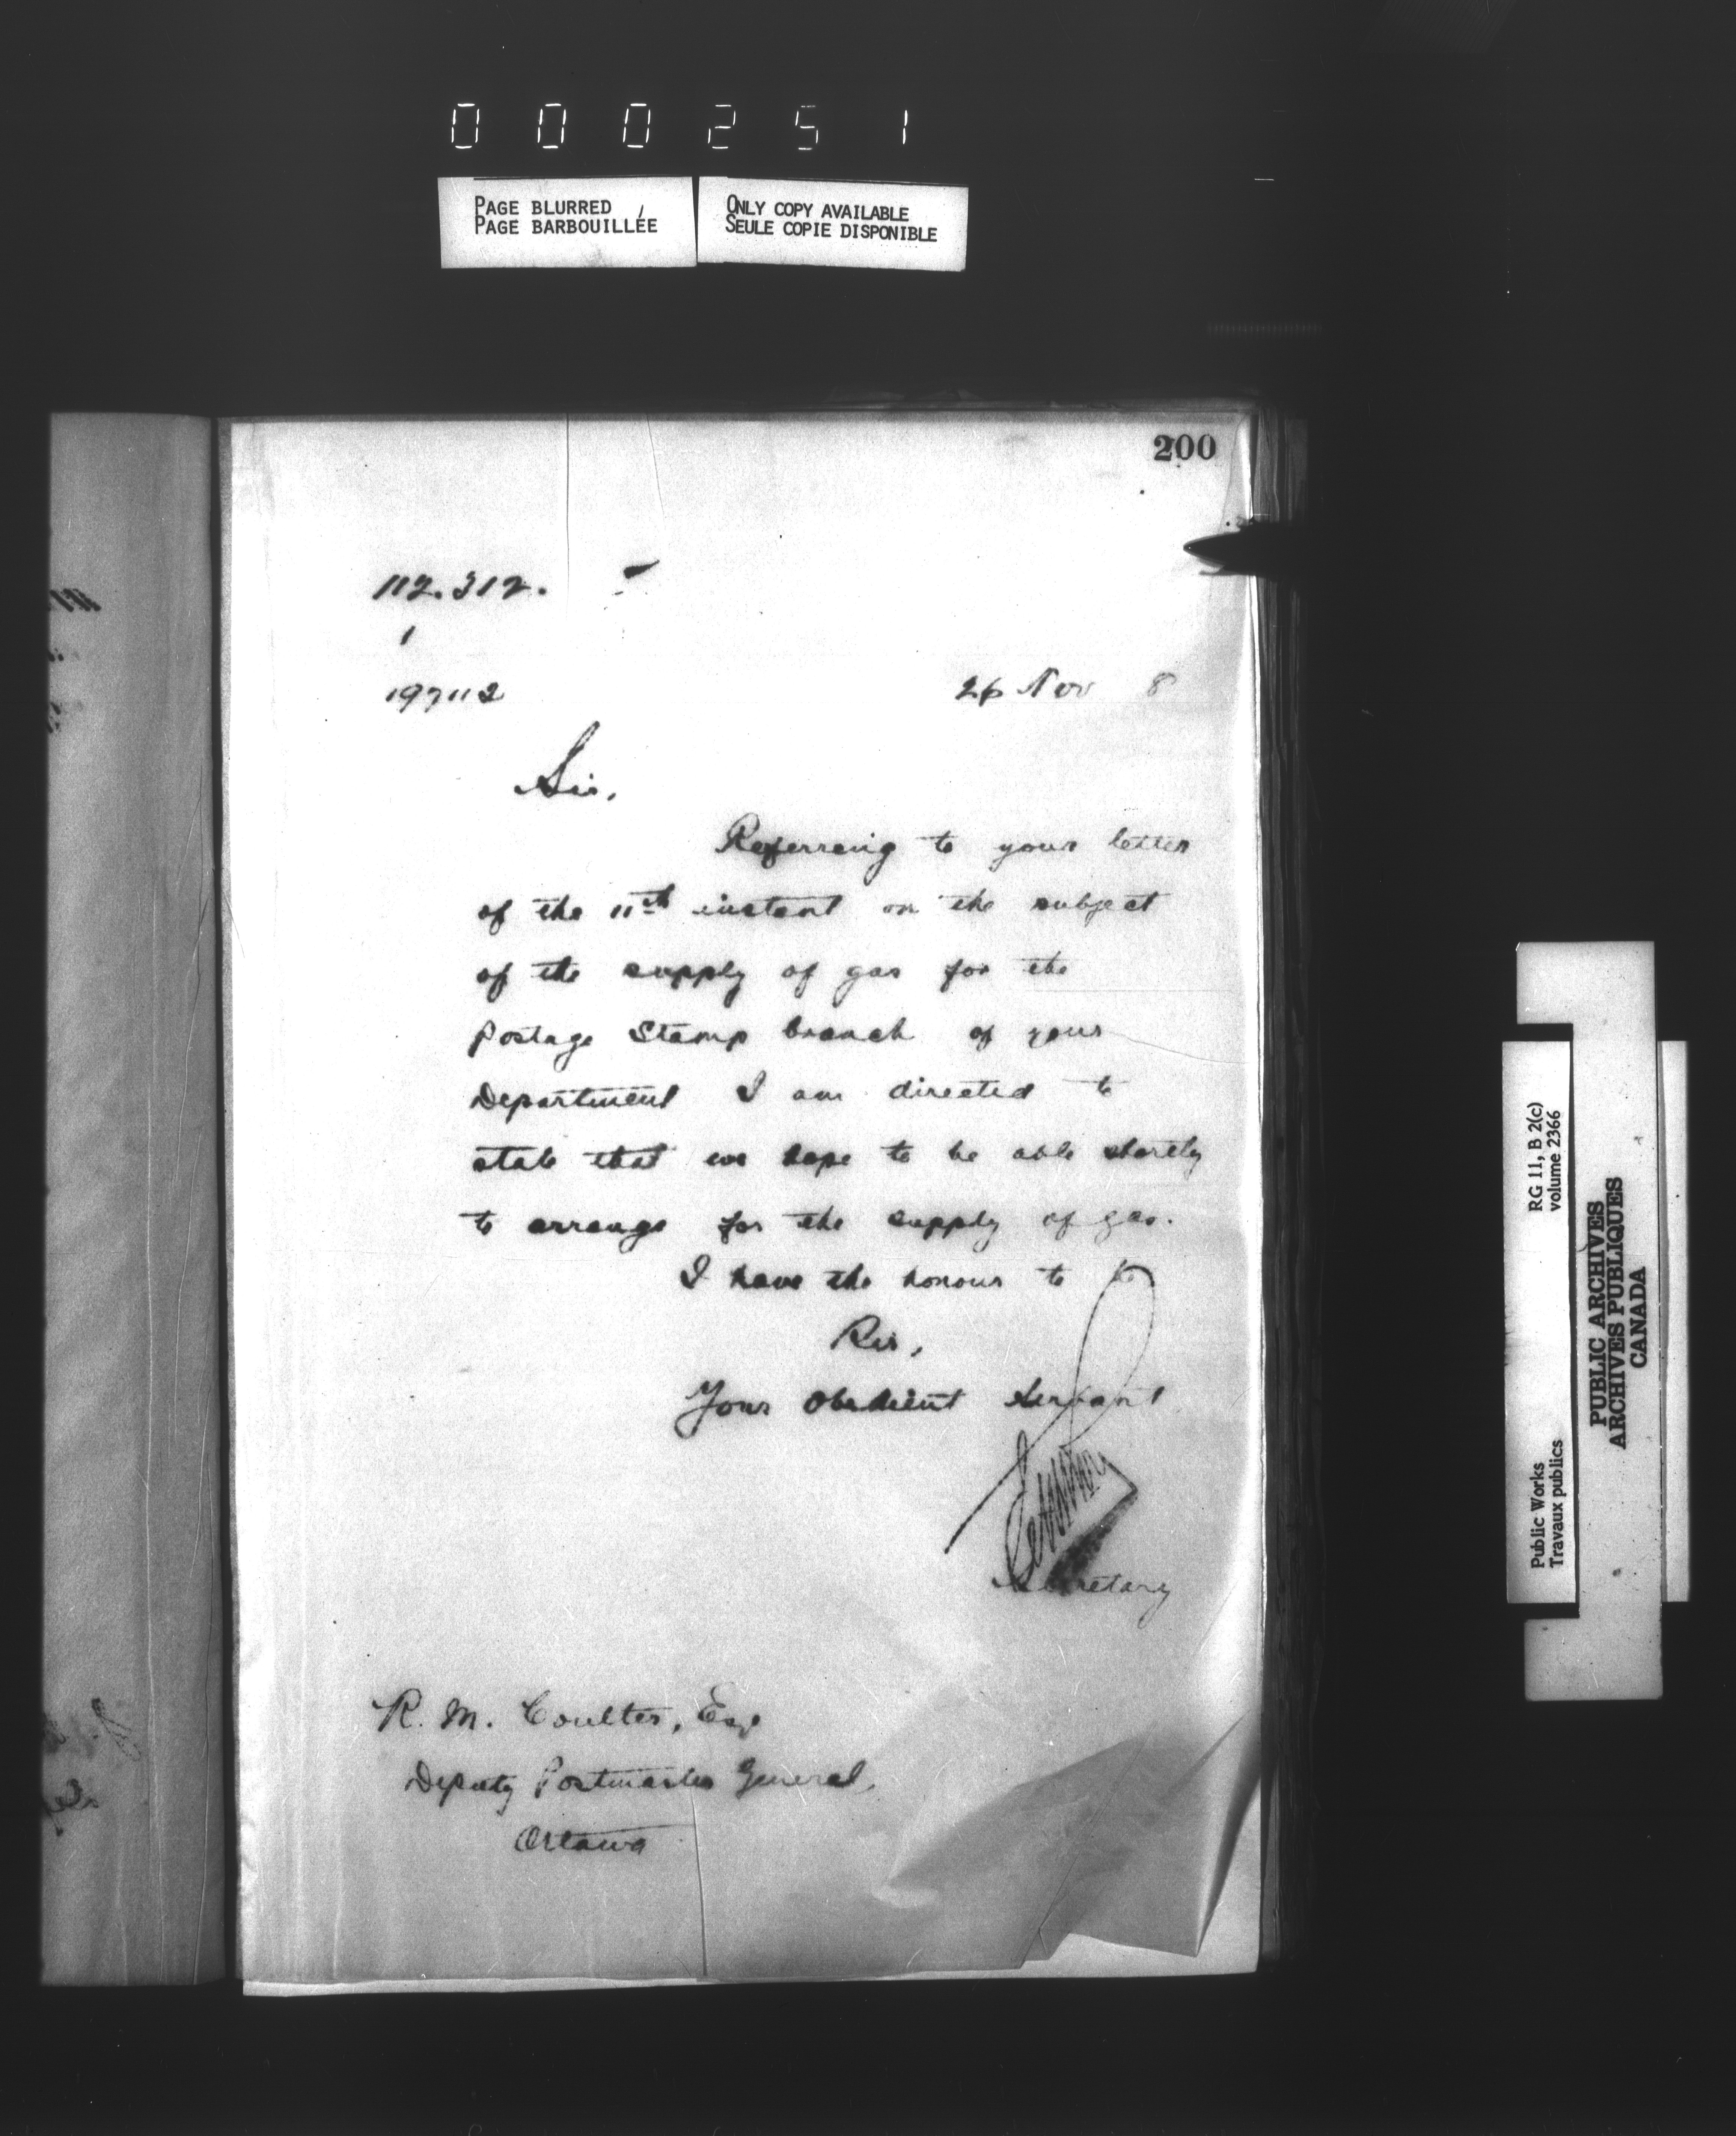 000251
PAGE BLURRED
PAGE BARBOUILLÉE
ONLY COPY AVAILABLE
SEULE COPIE DISPONIBLE
200
112.312.
1
197112
26 Nov 8
Sir,
Referring to your letter
of the 11th instant on the subject
of the supply of gas for the
Postage Stamp branch of your
Department I am directed to
state that we hope to be able shortly
to arrange for the supply of gas.
I have the honour to be
Sir,
Your Obedient Servant
Secretary
R. M. Coulter, Esq
Deputy Postmaster General,
Ottawa
Public Works
Travaux publics
RG 11, B 2(c)
volume 2366
PUBLIC ARCHIVES
ARCHIVES PUBLIQUES
CANADA